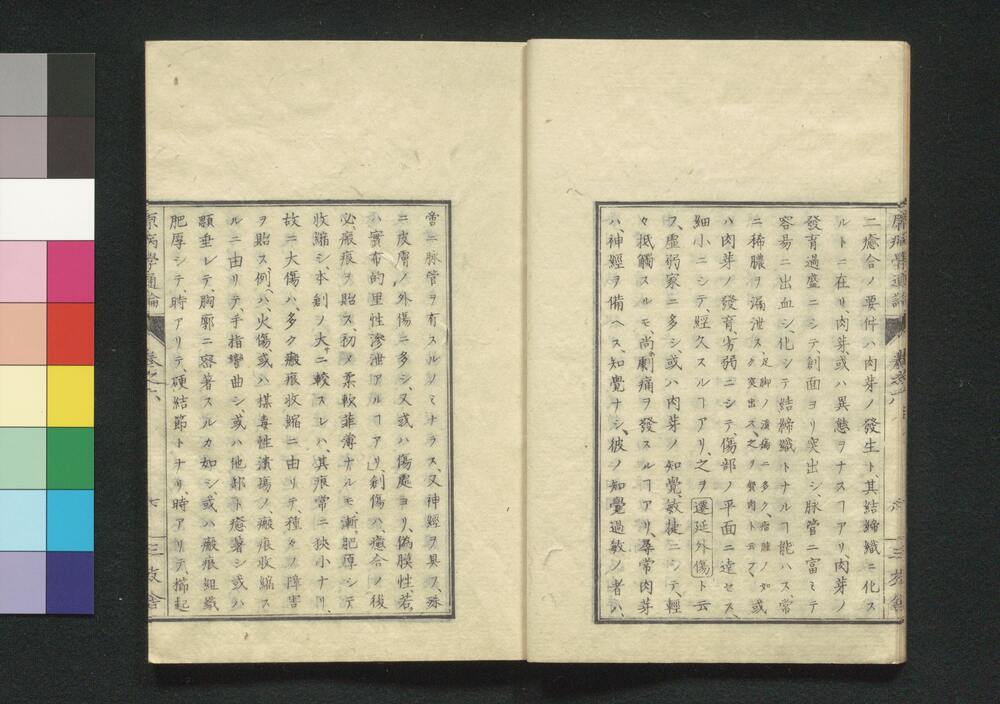 原病學通論
卷之六
六
三友舍
二癒合ノ要件ハ肉芽ノ發生ト其結締織ニ化ス
ルトニ在リ、肉芽或ハ異態ヲナスヿアリ、肉芽ノ
發育過盛ニシテ、創面ヨリ突出シ、脈管ニ富ミテ
容易ニ出血シ、化シテ結締織トナルヿ能ハス、常
ニ稀膿ヲ漏泄ス、足脚ノ潰瘍ニ多ク、疳腫ノ如ク突出ス之ヲ贅肉ト云フ、或
ハ肉芽ノ發育劣弱ニシテ傷部ノ平面ニ達セス、
細小ニシテ、經久スルヿアリ、之ヲ遷延外傷ト云
フ、虛弱家ニ多シ、或ハ肉芽ノ知覺敏捷ニシテ、輕
ク抵觸スルモ、尚劇痛ヲ發スルヿアリ、尋常肉芽
ハ、神經ヲ備ヘス、知覺ナシ、彼ノ知覺過敏ノ者ハ、
啻ニ脈管ヲ有スルノミナラス、又神經ヲ具フ、殊
ニ皮膚ノ外傷ニ多シ、又或ハ傷處ヨリ、偽膜性若
ハ實布的里性滲泄アルヿアリ、創傷ハ、癒合ノ後
必、瘢痕ヲ貽ス、初メ柔軟菲薄ナルモ、漸肥厚シテ
收縮シ、本創ノ大サニ較スレハ、其痕常ニ狹小ナリ、
故ニ大傷ハ、多ク瘢痕收縮ニ由リテ、種々ノ障害
ヲ貽ス例ヘハ、火傷、或ハ楳毒性潰瘍ノ、瘢痕收縮ス
ルニ由リテ、手指彎曲シ或ハ他部ト癒著シ或ハ
顋垂レテ、胸廓ニ密著スルカ如シ或ハ瘢痕組織
肥厚シテ、時アリテ、硬結節トナリ、時アリテ、櫛起
原病學通論
卷之六
七
三友舍